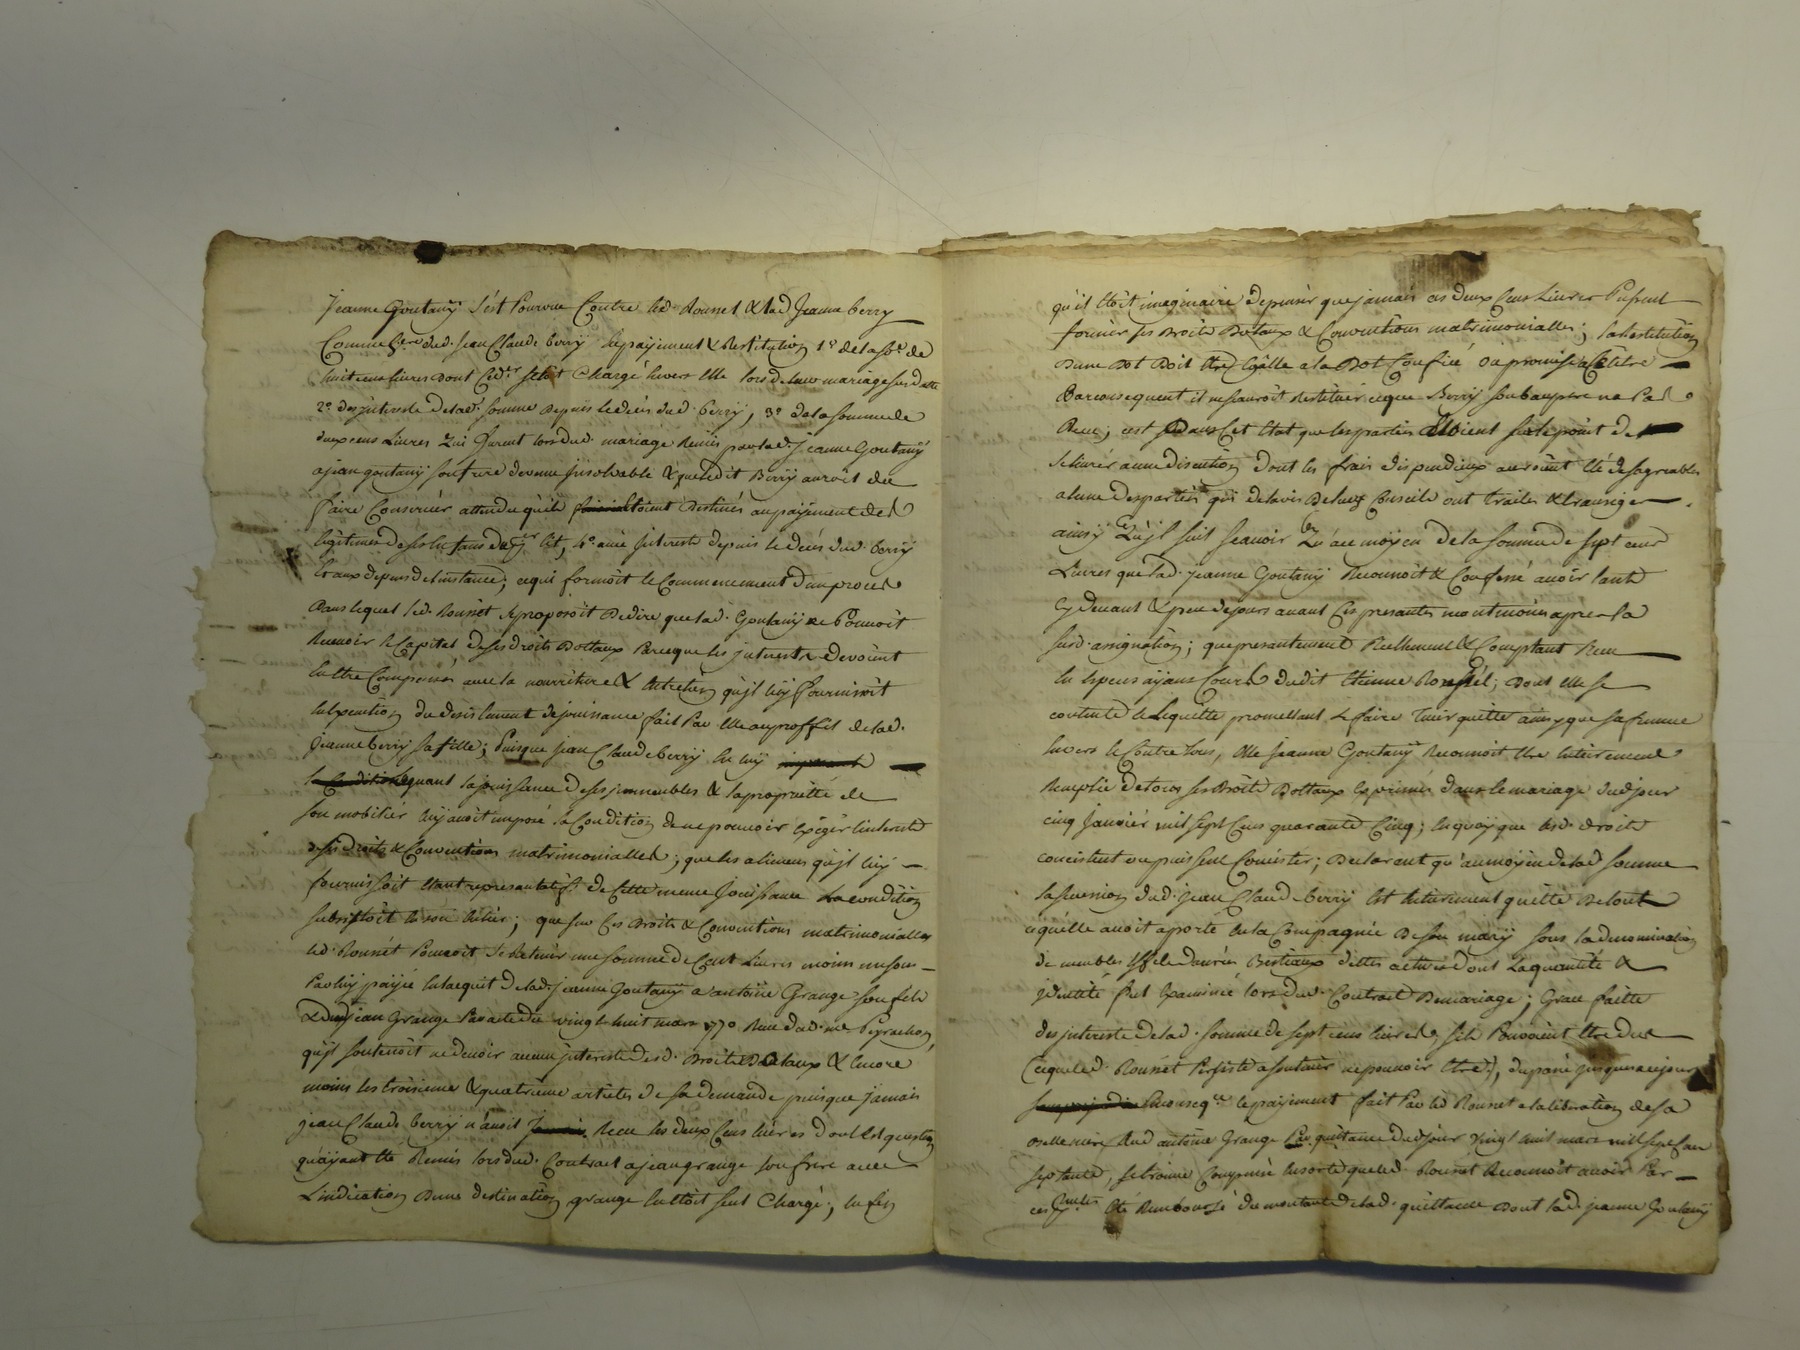 Jeanne Goutany s'est Pourvue Contre led. Rousset & lad Jeanne berry
Comme dud. Jean Claude berry en payement & Restitution 1° de la so.e de
huit cens livres dont led. s'etoit Chargé envers Elle lors de leur mariage susdatté
2° des interests de lad. somme Depuis le decés dud. berry, 3° de la somme de
deux cens Livres qui furent lors dud. mariage Remis par lad. jeanne Goutany
a jean goutany son frere devenu insolvable & que ledit Berry auroit du
faire Conserver attendu qu'ils étoient Destinés au payement des
legitimes de ses Enfans du 1er lit, 4° avec Interests depuis le decés dud. berry
Et aux depens de l'instance; ce qui formoit le Commencement d'un procés
Dans lequel led. Rousset se proposoit De dire que lad. Goutany ne Pouvoit
Recevoir le Capital de ses droits Dottaux Parce que les interests devoint
En être Compensés avec la nourriture & Entretien qu'jl luy fournissoit
En Execution du desistement de jouissance fait Par Elle au proffit de lad.
Jeanne berry sa fille; Puisque jean Claude berry En luy
leguant la jouissance de ses immeubles & la proprietté de
son mobilier luy avoit imposé la Condition de ne pouvoir exiger l'interest
de ses droits & Conventions matrimonialles; que les alimens qu'jl luy
fournissoit Etant representatifs de Cette meme Jouissance La condition
subsistoit En son Entier; que sur Ces Droits & Conventions matrimonialles
led. Rousset Pouvoit se Retenir une somme de Cent Livres moins un sou
Par luy payée En l'acquit de lad. jeanne Goutany a antoine Grange son fils
& dud. jean Grange Par acte du vingt huit mars 1770 Recu dud. me Peyrachon
qu'jl soutenoit ne devoir aucun jnterests desd. Droits Dotaux & Encore
moins les troisieme & quatrieme articles de sa demande puisque jamais
jean Claude berry n'avoit Recu les deux Cens livres dont Est question
qu'ayant Eté Remis lors dud. Contract a jean grange son frere avec
L'indication D'une destination grange En Etoit seul Chargé; Enfin
qu'il Etoit imaginaire de penser que jamais ces deux Cens Livres Pussent
former ses Droits Dotaux & Conventions matrimonialles; la Restitution
D'une Dot Doit Etre Egalle a la Dot Confiée ou promise a Ce titre
Par consequent il ne sauroit Restituer ce que Berry son beaupere n'a Pas
Recu; c'est Dans Cet Etat que les parties Etoient sur le point de
se livrer a une Discution Dont les frais dispendieux auroint Eté desagreables
a l'une des parties qui de l'avis De leurs Conseils ont traités & transiger
ainsy Qu'jl suit Scavoir Qu'au moyen de la somme de sept cens
Livres que lad. jeanne Goutany Reconnoit & Confesse avoir tant
Cy devant & peu de jours avant Ces presantes moins apres la
susd. assignation; que presantement Reellement & Comptant Recu
En Especes ayans Cours dudit Etienne Rousset; Dont Elle se
contente & Le quitte promettant Le faire tenir quitte ainsy que sa femme
Envers & Contre tous, Elle Jeanne Goutany Reconnoit Etre Entierement
Remplie De tous ses Droits Dottaux Exprimés dans le mariage dud jour
cinq Janvier mil sept Cens quarante Cinq; En quoy que lesd. droits
concistent ou puissent Concister; Declarent qu'au moyen de lad somme
la succession dud. jean Claude berry Est Entierement quitte De tout
ce qu'elle avoit aporté En la Compagnie De son mary sous la denomination
de meubles Effets danrées Bestiaux dettes actives dont La quantité &
jdentité fut Examinée lors dud. Contract De mariage; Grace faitte
des jnterests de lad. somme de sept cens livres, s'ils Pouvoint Etre dus
(ce que led. Rousset Persiste a soutenir ne pouvoir Etre), du passé jusques a ce jour
En conseq.ce le payement fait Par led Rousset a la liberation de sa
Bellemere aud antoine Grange Par quittance dud jour vingt huit mars mil sept Cens
septante, se trouve Compensé En sorte que led. Rousset Reconnoit avoir Par
ces Eté Remboursé du montant de lad. quittance Dont lad. jeanne Goutany